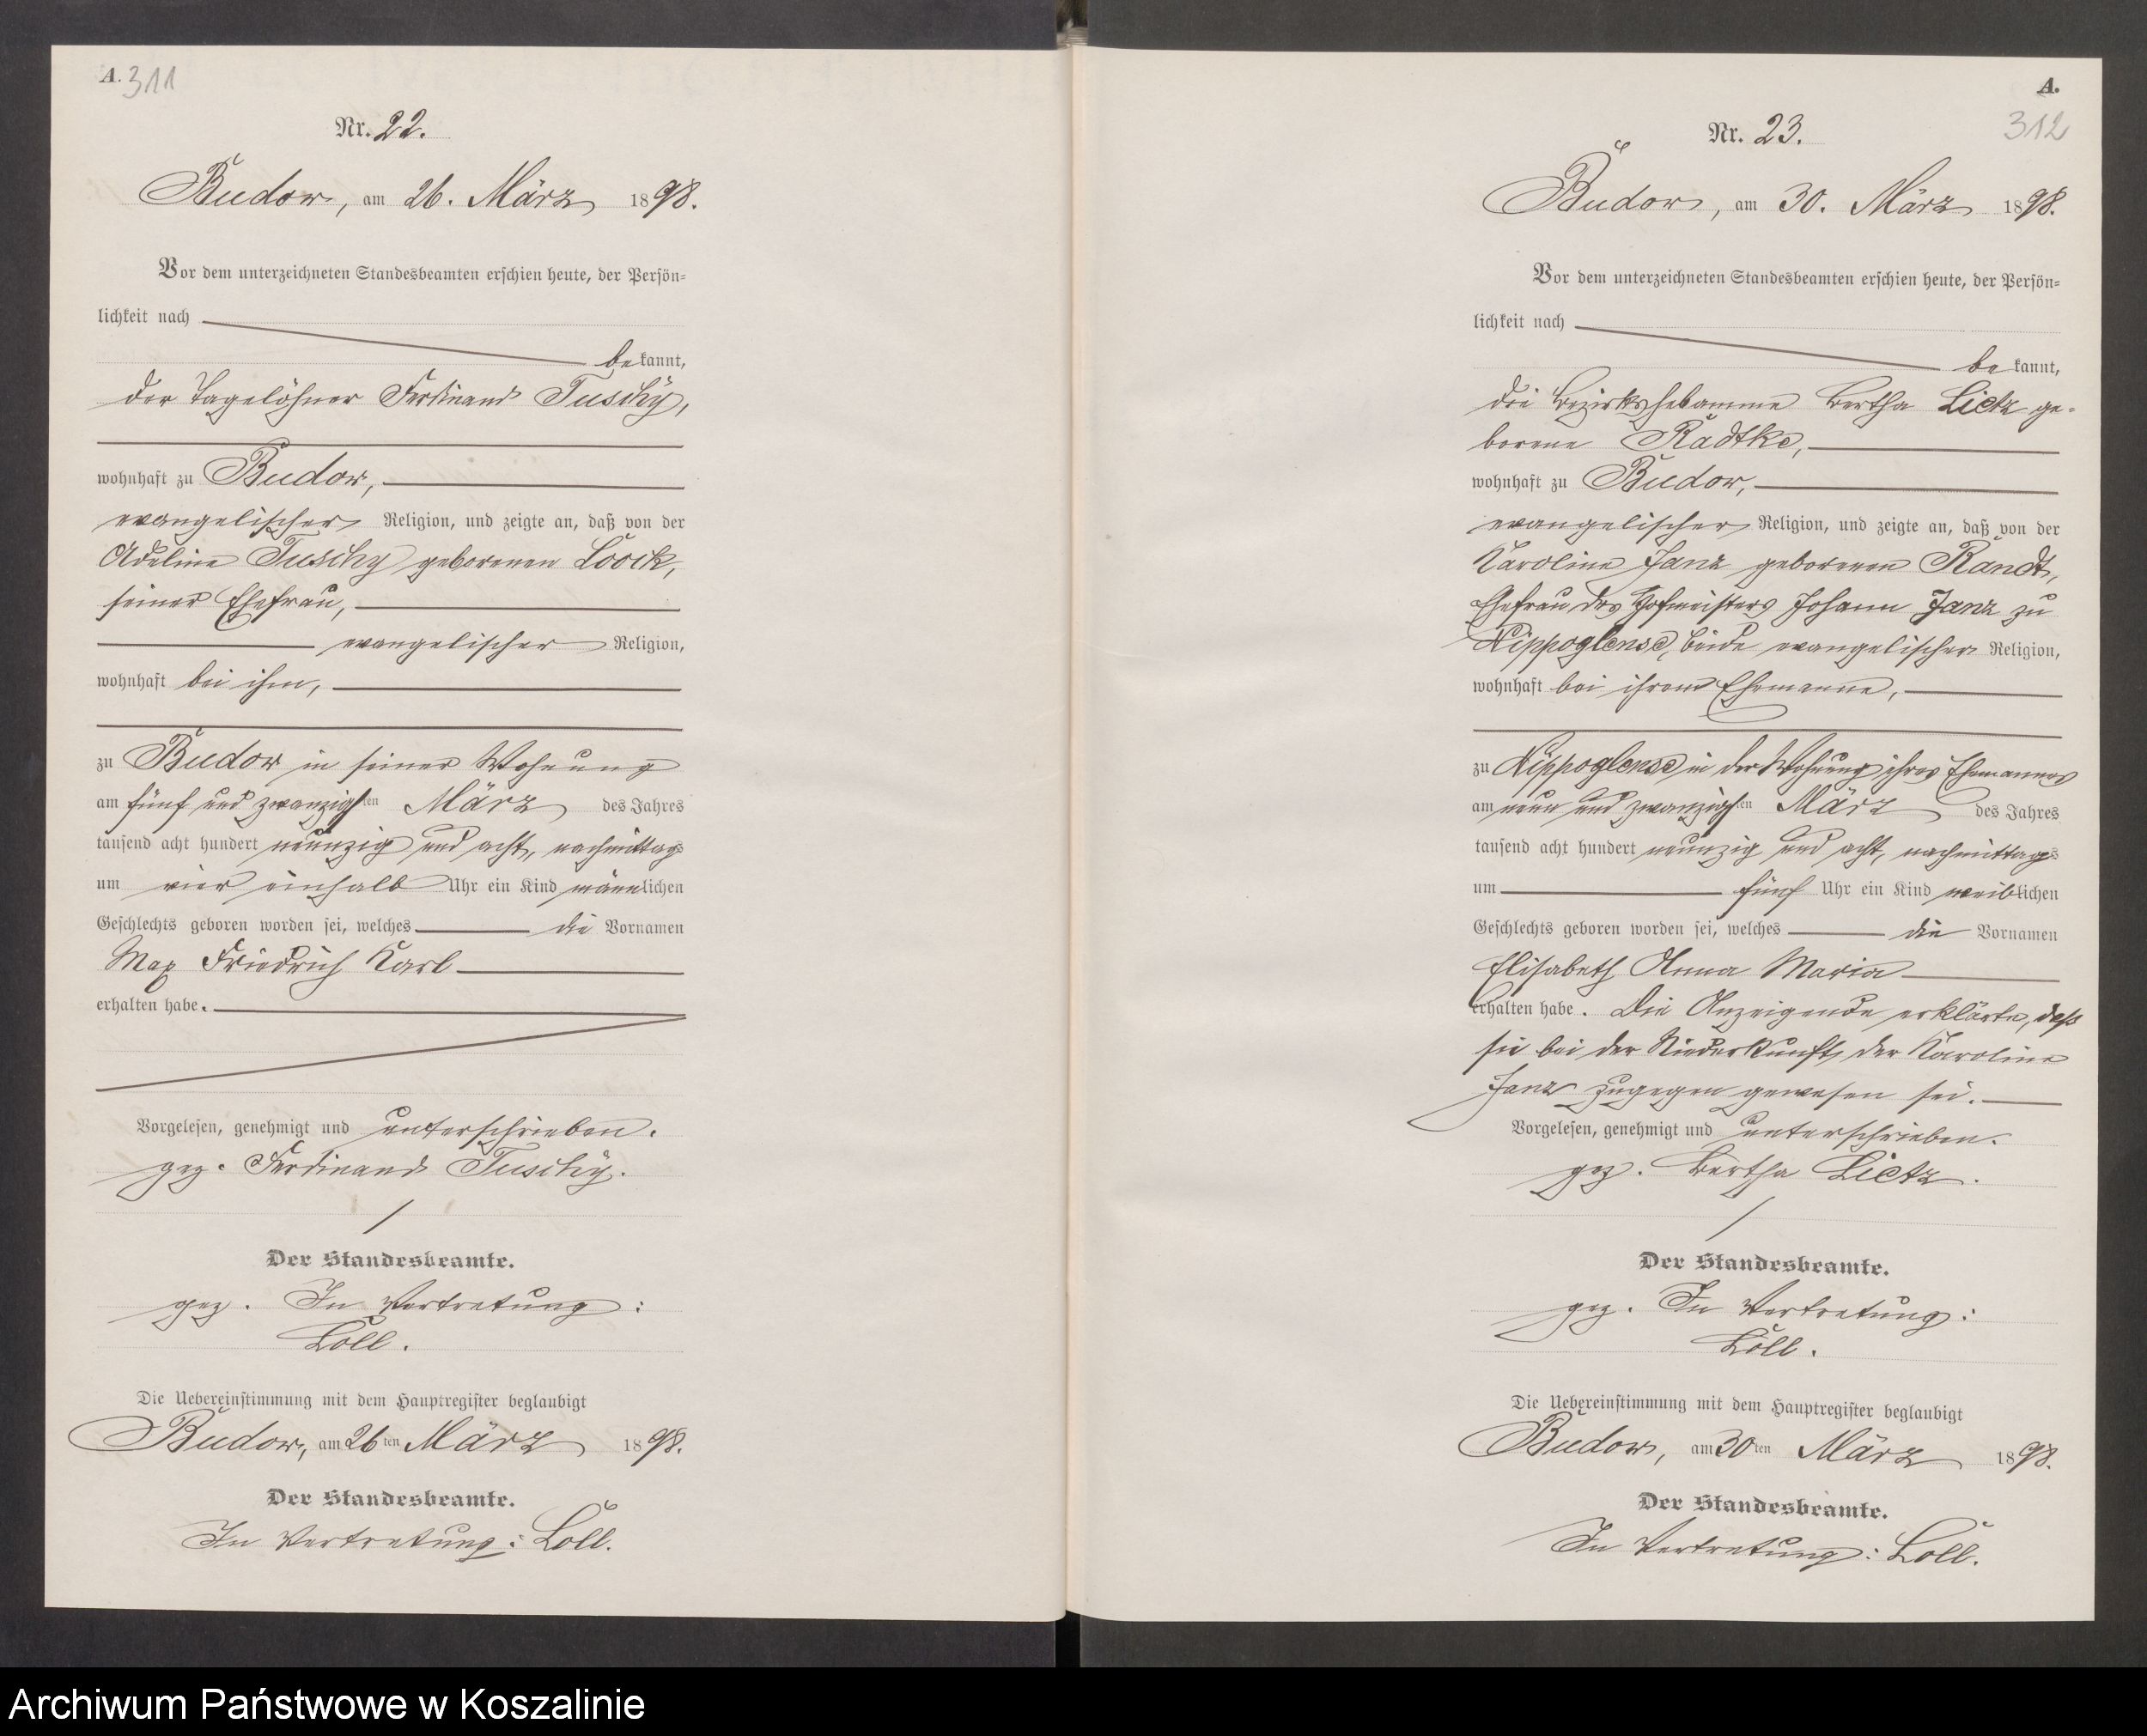 A. 311
Nr. 22.
Budow, am 26. März 1898.
Vor dem unterzeichneten Standesbeamten erschien heute, der Persön-
lichkeit nach
bekannt,
der Tagelöhner Ferdinand Tuschy,
wohnhaft zu Budow,
evangelischer Religion, und zeigte an, daß von der
Adeline Tuschy geborenen Loock,
seiner Ehefrau,
evangelischer Religion,
wohnhaft bei ihm,
zu Budow in seiner Wohnung
am fünf und zwanzigsten März des Jahres
tausend acht hundert neunzig und acht, nachmittags
um vier einhalb Uhr ein Kind männlichen
Geschlechts geboren worden sei, welches die Vornamen
Max Friedrich Karl
erhalten habe.
Vorgelesen, genehmigt und unterschrieben.
gez. Ferdinand Tuschy.
Der Standesbeamte.
gez. In Vertretung:
Loll.
Die Uebereinstimmung mit dem Hauptregister beglaubigt
Budow, am 26ten März 1898.
Der Standesbeamte.
In Vertretung: Loll.
A.
312
Nr. 23.
Budow, am 30. März 1898.
Vor dem unterzeichneten Standesbeamten erschien heute, der Persön-
lichkeit nach
bekannt,
die Bezirkshebamme Bertha Lietz ge-
borene Radtke,
wohnhaft zu Budow,
evangelischer Religion, und zeigte an, daß von der
Karoline Janz geborenen Randt,
Ehefrau des Hofmeisters Johann Janz zu
Nippoglense, beide evangelischer Religion,
wohnhaft bei ihrem Ehemanne,
zu Nippoglense in der Wohnung ihres Ehemannes
am neun und zwanzigsten März des Jahres
tausend acht hundert neunzig und acht, nachmittags
um fünf Uhr ein Kind weiblichen
Geschlechts geboren worden sei, welches die Vornamen
Elisabeth Anna Maria
erhalten habe. Die Anzeigende erklärte, daß
sie bei der Niederkunft der Karoline
Janz zugegen gewesen sei.
Vorgelesen, genehmigt und unterschrieben.
gez. Bertha Lietz.
Der Standesbeamte.
gez. In Vertretung:
Loll.
Die Uebereinstimmung mit dem Hauptregister beglaubigt
Budow, am 30ten März 1898.
Der Standesbeamte.
In Vertretung: Loll.
Archiwum Państwowe w Koszalinie